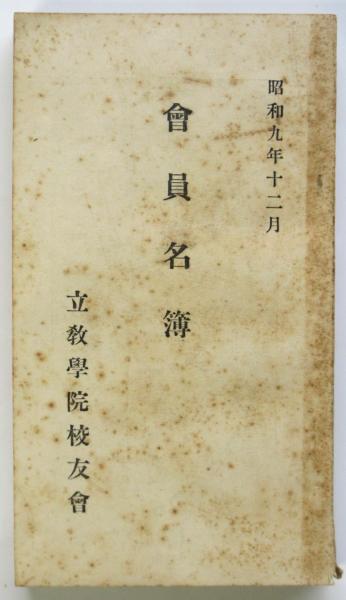 昭和九年十二月
會員名簿
立敎學院校友會